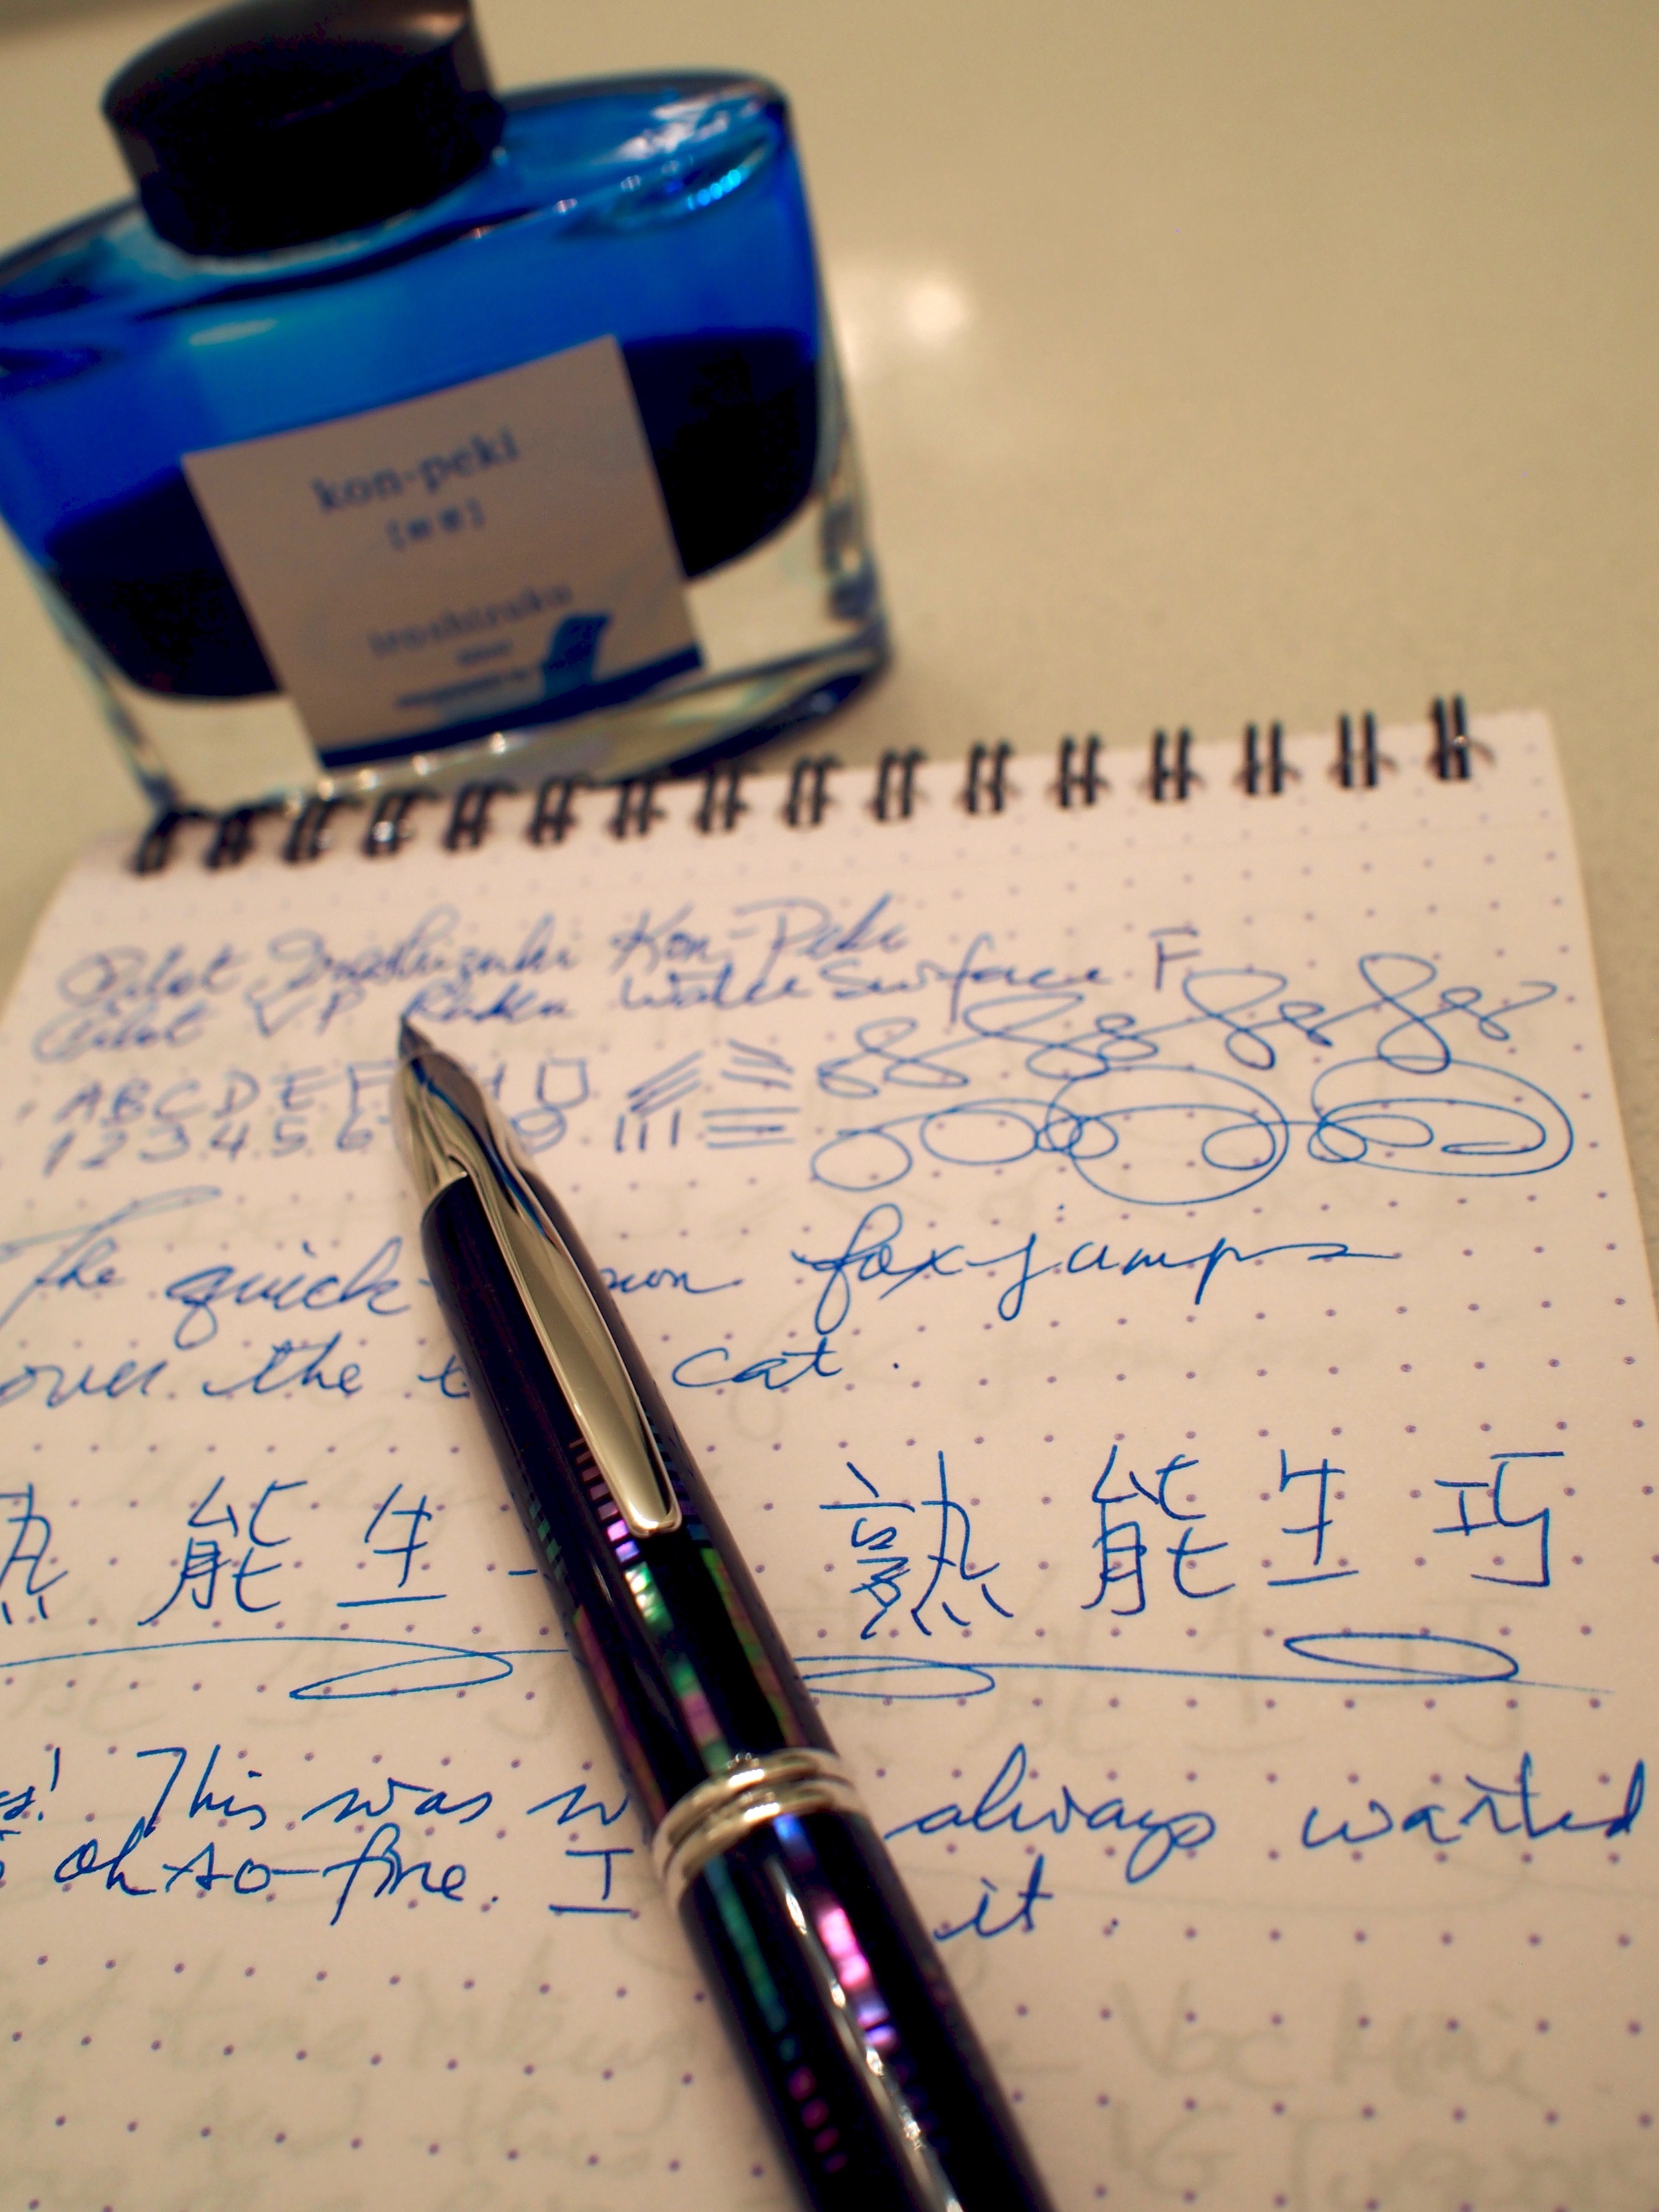 kon-peki
iroshizuku
Pilot Iroshizuku Kon-Peki
Pilot VP Raden Water Surface F
A B C D E F H
1 2 3 4 5 6 9
The quick fox jumps
over the cat.
能 生 熟 能 生 巧
This was always wanted
oh-so-fine. I it.